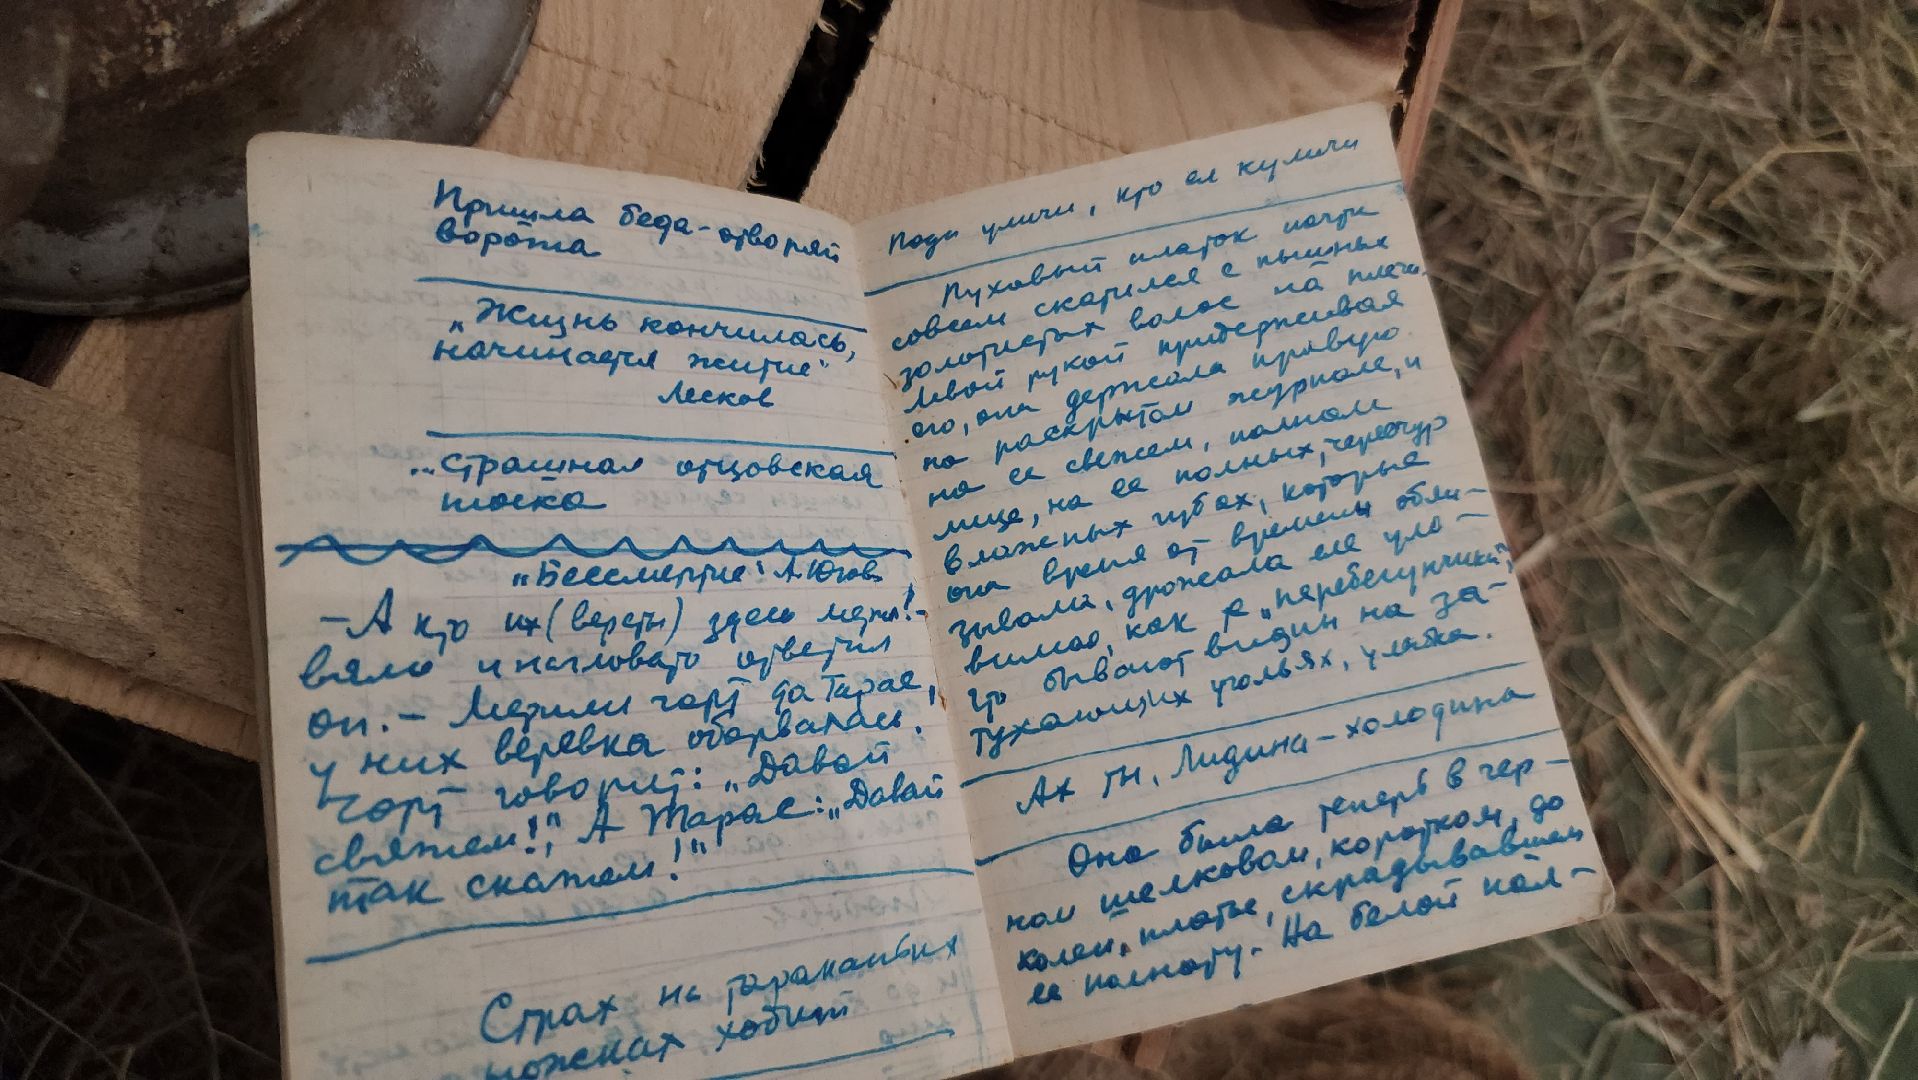 Пришла беда - отворяй
ворота
„Жизнь кончилась,
начинается житие"
Лесков
...страшная отцовская
тоска
„Бессмертие" А. Югов
- А кто их (версты) здесь мерял! -
вяло и нагловато ответил
он. - Мерили чорт да Тарас,
у них веревка оборвалась.
Чорт говорит: „Давай
свяжем!", А Тарас: „Давай
так скажем!"
Страх на тараканьих
ножках ходит
Поди уличи, кто ел куличи
Пуховый платок почти
совсем скатился с пышных
золотистых волос на плечи.
Левой рукой придерживая
его, она держала правую
на раскрытом журнале, и
на ее свежем, полном
лице, на ее полных, чересчур
влажных губах, которые
она время от времени обли-
зывала, дрожала еле уло-
вимо, как „перебегунчики",
что бывают видны на за-
тухающих угольях, улыбка.
Ах ты, Лидина - холодина
Она была теперь в чер-
ном шелковом, коротком, до
колен, платье, скрадывавшем
ее полноту. На белой пол-